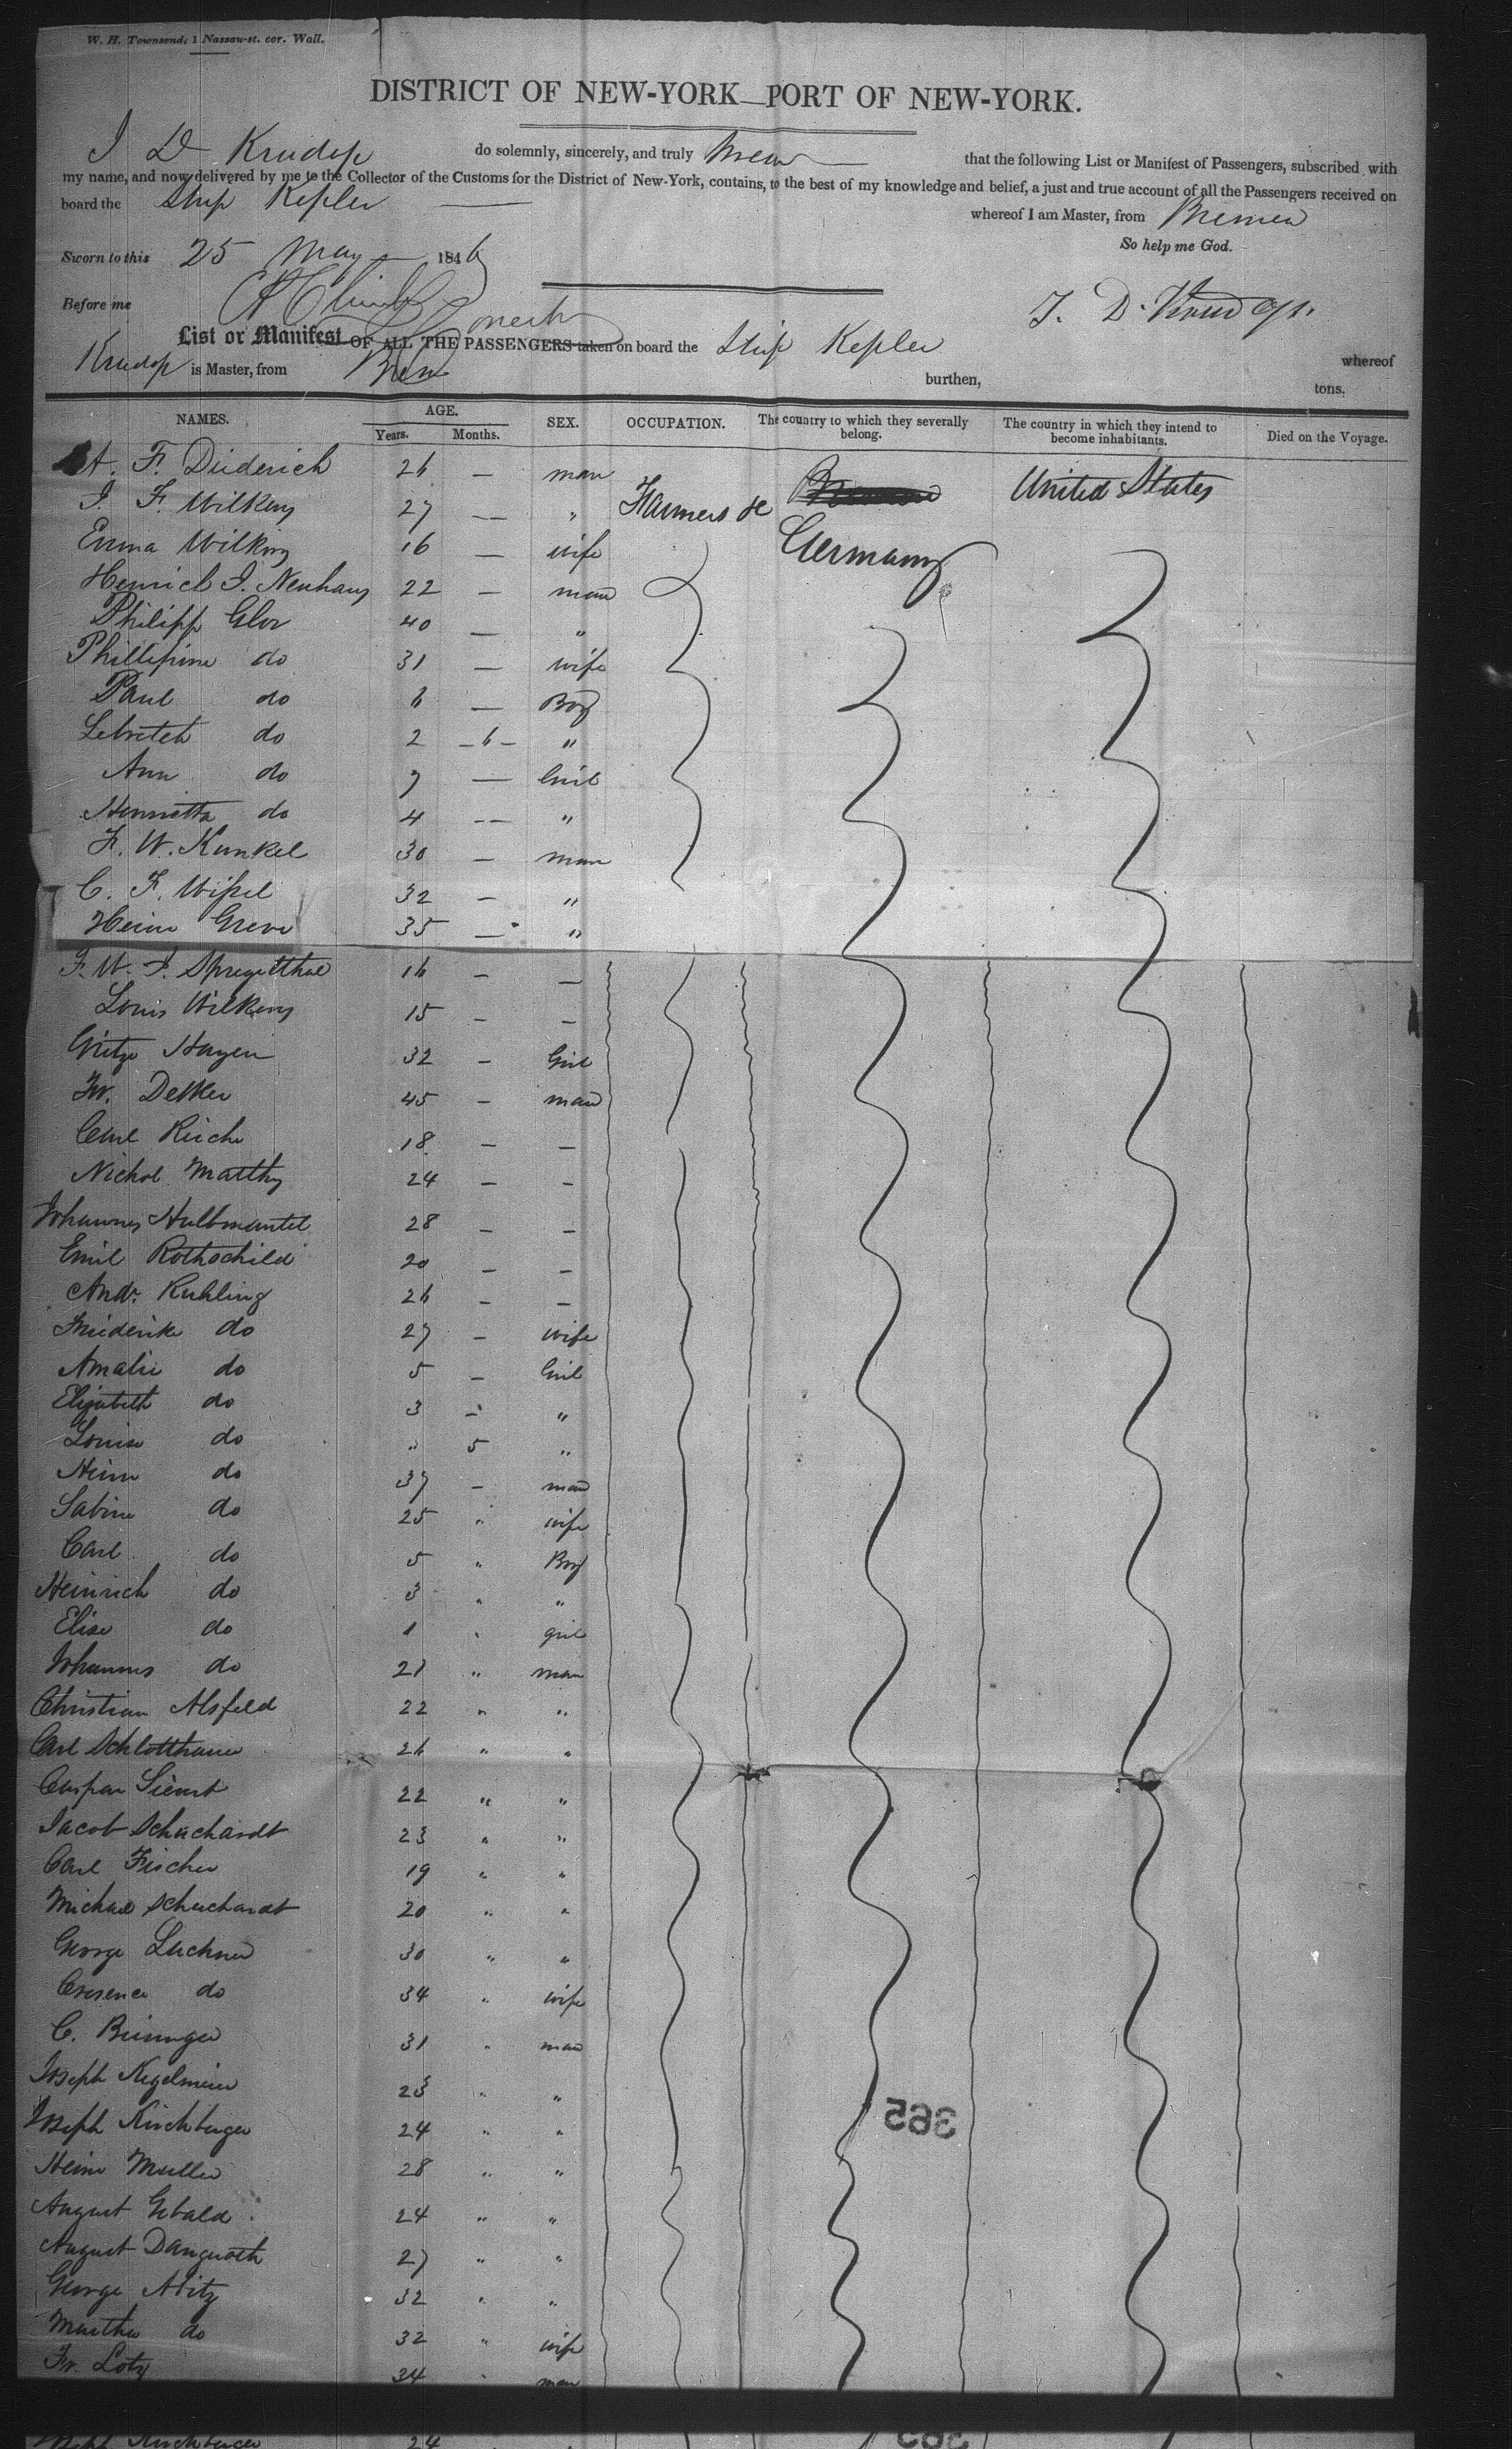 W. H. Townsend, 1 Nassau-st. cor. Wall.
DISTRICT OF NEW-YORK—PORT OF NEW-YORK.
I D Krudop do solemnly, sincerely, and truly that the following List or Manifest of Passengers, subscribed with
my name, and now delivered by me to the Collector of the Customs for the District of New-York, contains, to the best of my knowledge and belief, a just and true account of all the Passengers received on
board the Ship Kepler whereof I am Master, from Bremen
So help me God.
Sworn to this 25 May 1846
Before me
List or Manifest OF ALL THE PASSENGERS taken on board the Ship Kepler whereof
Krudop is Master, from Bremen burthen, tons.
NAMES. AGE. Years. Months. SEX. OCCUPATION. The country to which they severally belong. The country in which they intend to become inhabitants. Died on the Voyage.
A. F. Diederich 26 — man United States
J. F. Wilkens 27 — " Farmers &c
Emma Wilkens 16 — wife Germany
Henrich J. Neuhaus 22 — man
Philipp Glor 40 — "
Phillipine do 31 — wife
Paul do 6 — Boy
do 2 -6- "
Ann do 7 — Girl
Henrietta do 4 — "
F. W. Kunkel 30 — man
C. F. Wissel 32 — "
Heinr Greve 35 — "
F. W. J. 16 — —
Louis Wilkens 15 — —
Hagen 32 — Girl
Fr. Detker 45 — man
Carl 18 — —
Nichol Matthy 24 — —
Johannes Halbmantel 28 — —
Emil Rothschild 20 — —
Andr. Ruhling 26 — —
Friederike do 27 — wife
Amalie do 5 — Girl
Elizabeth do 3 — "
Louise do " 5 "
Heinr do 37 — man
Sabine do 25 " wife
Carl do 5 " Boy
Heinrich do 3 " "
Elise do 1 " girl
Johannes do 21 " man
Christian Alsfeld 22 " "
Carl Schlotthauer 26 " "
Caspar 22 " "
Jacob Schuchardt 23 " "
Carl Fischer 19 " "
Michael Schuchardt 20 " "
George Luchner 30 " "
Cresence do 34 " wife
C. 31 " man
Joseph Kegelmeier 23 " "
Joseph Kirchberger 24 " "
365
Heinr Muller 28 " "
August Gebald 24 " "
August Danguoth 27 " "
George 32 " "
Martha do 32 " wife
Fr. Lotz 34 " man
Joseph Kirchberger 24